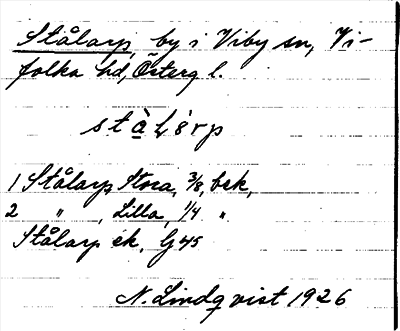 Stålarp, by i Viby sn, Vi-
folka hd, Österg l.
stàḷ́ạrp
1 Stålarp Stora, 3/8, bek,
2 " , Lilla, 1/4 "
Stålarp ek, G 45
N. Lindqvist 1926